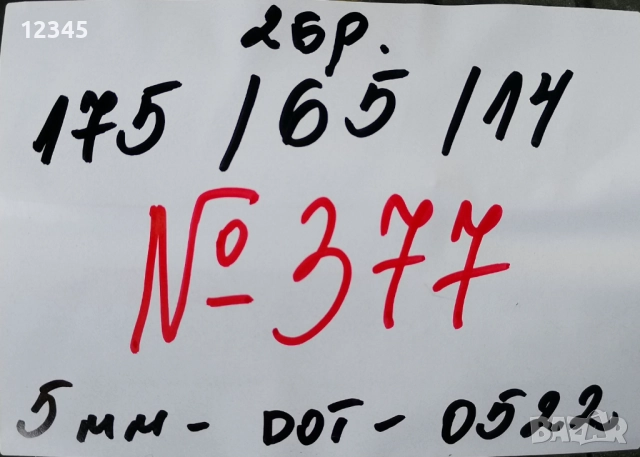 12345
2бр.
175 /65 /14
№ 377
5мм- DOT - 0522
BAZAR